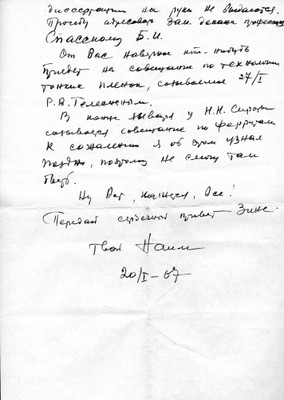 диссертации на руки не выдаются.
Просьбу адресовать Зам. декана
Спасскому Б. И.
От Вас наверное кто-нибудь
приедет на совещание по технологии
тонких пленок, созываемое 27/I
Р. В. Телесниным.
В конце января у Н. Н. Сироты
созывается совещание по ферритам
К сожалению я об этом узнал
поздно, поэтому не смогу там
быть.
Ну вот, кажется, все!
Передай сердечный привет Зине.
Твой Наим
20/I-67